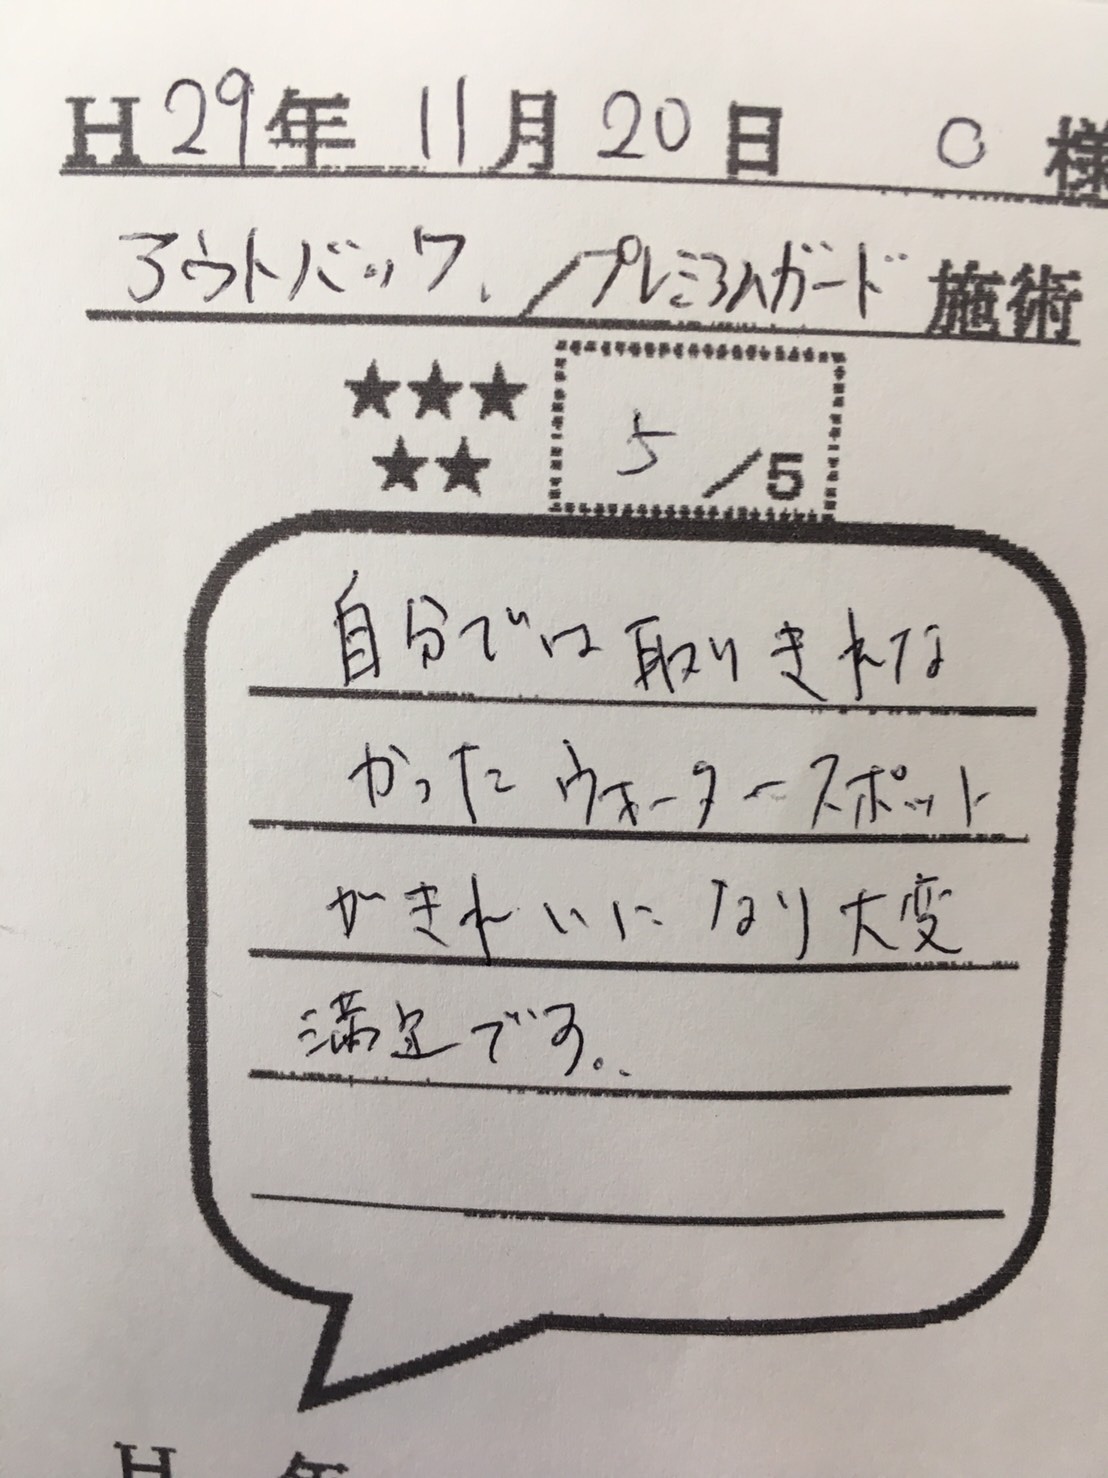 H29年 11月20日 O様
アウトバック、/プレミアムガード 施術
★★★
★★
5/5
自分では取りきれな
かったウォータースポット
がきれいになり大変
満足です。
H 年